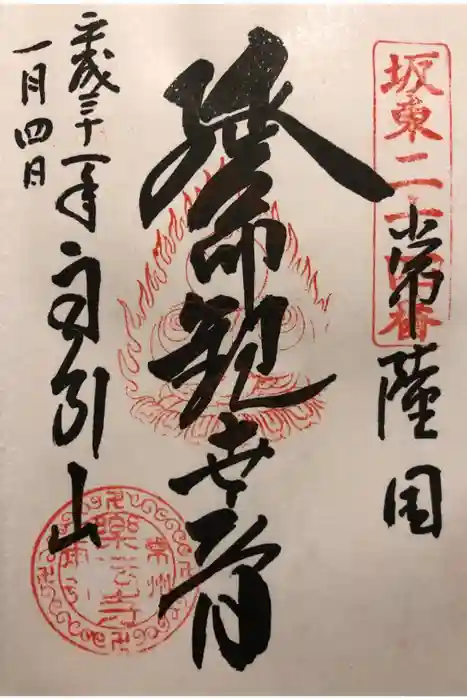 坂東二十四番
常陸国
延命観世音
雨引山
平成三十一年
一月四日
常州
樂法寺
雨引